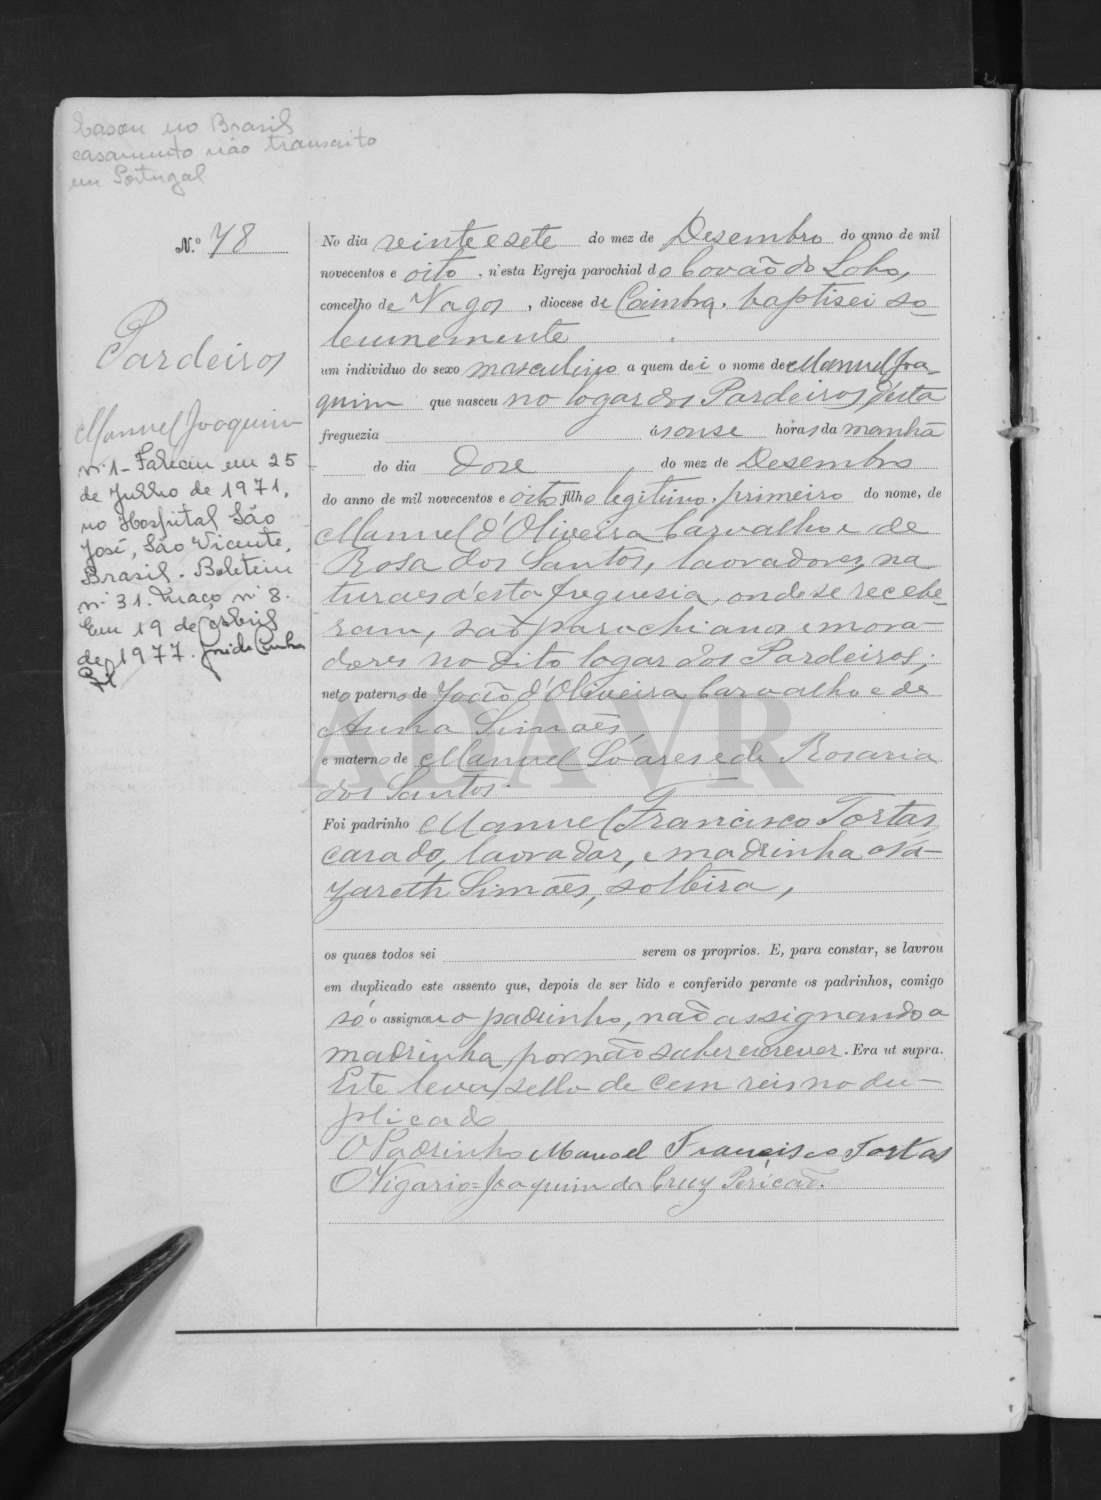 Casou no Brasil
casamento não transcrito
em Portugal
N.º 78
Pardeiros
Manuel Joaquim
nº 1 - Faleceu em 25
de Julho de 1971,
no Hospital São
José, São Vicente,
Brasil. Boletim
nº 31. Maço nº 8.
Em 19 de Abril
de 1977.
No dia vinte e sete do mez de Desembro do anno de mil
novecentos e oito, n'esta Egreja parochial do Covão do Lobo,
concelho de Vagos, diocese de Coimbra, baptisei so-
lemnemente
um individuo do sexo masculino a quem dei o nome de Manuel Joa-
quim que nasceu no logar dos Pardeiros, d'esta
freguezia ás onse horas da manhã
do dia dose, do mez de Desembro
do anno de mil novecentos e oito filho legitimo, primeiro do nome, de
Manuel d'Oliveira Carvalho e de
Rosa dos Santos, lavradores, na
turaes d'esta freguesia, onde se recebe-
ram, são parochianos e mora-
dores no dito logar dos Pardeiros;
neto paterno de João d'Oliveira Carvalho e de
Anna Simões,
e materno de Manuel Soares e de Rosaria
dos Santos.
Foi padrinho Manuel Francisco Tortas,
casado, lavrador, e madrinha Na-
zareth Simões, solteira,
os quaes todos sei serem os proprios. E, para constar, se lavrou
em duplicado este assento que, depois de ser lido e conferido perante os padrinhos, comigo
só o assignou o padrinho, não assignando a
madrinha por não saber escrever. Era ut supra.
Este leva sello de cem reis no du-
plicado
O Padrinho Manoel Francisco Tortas
O Vigario = Joaquim da Cruz Pericão.
ADAVR